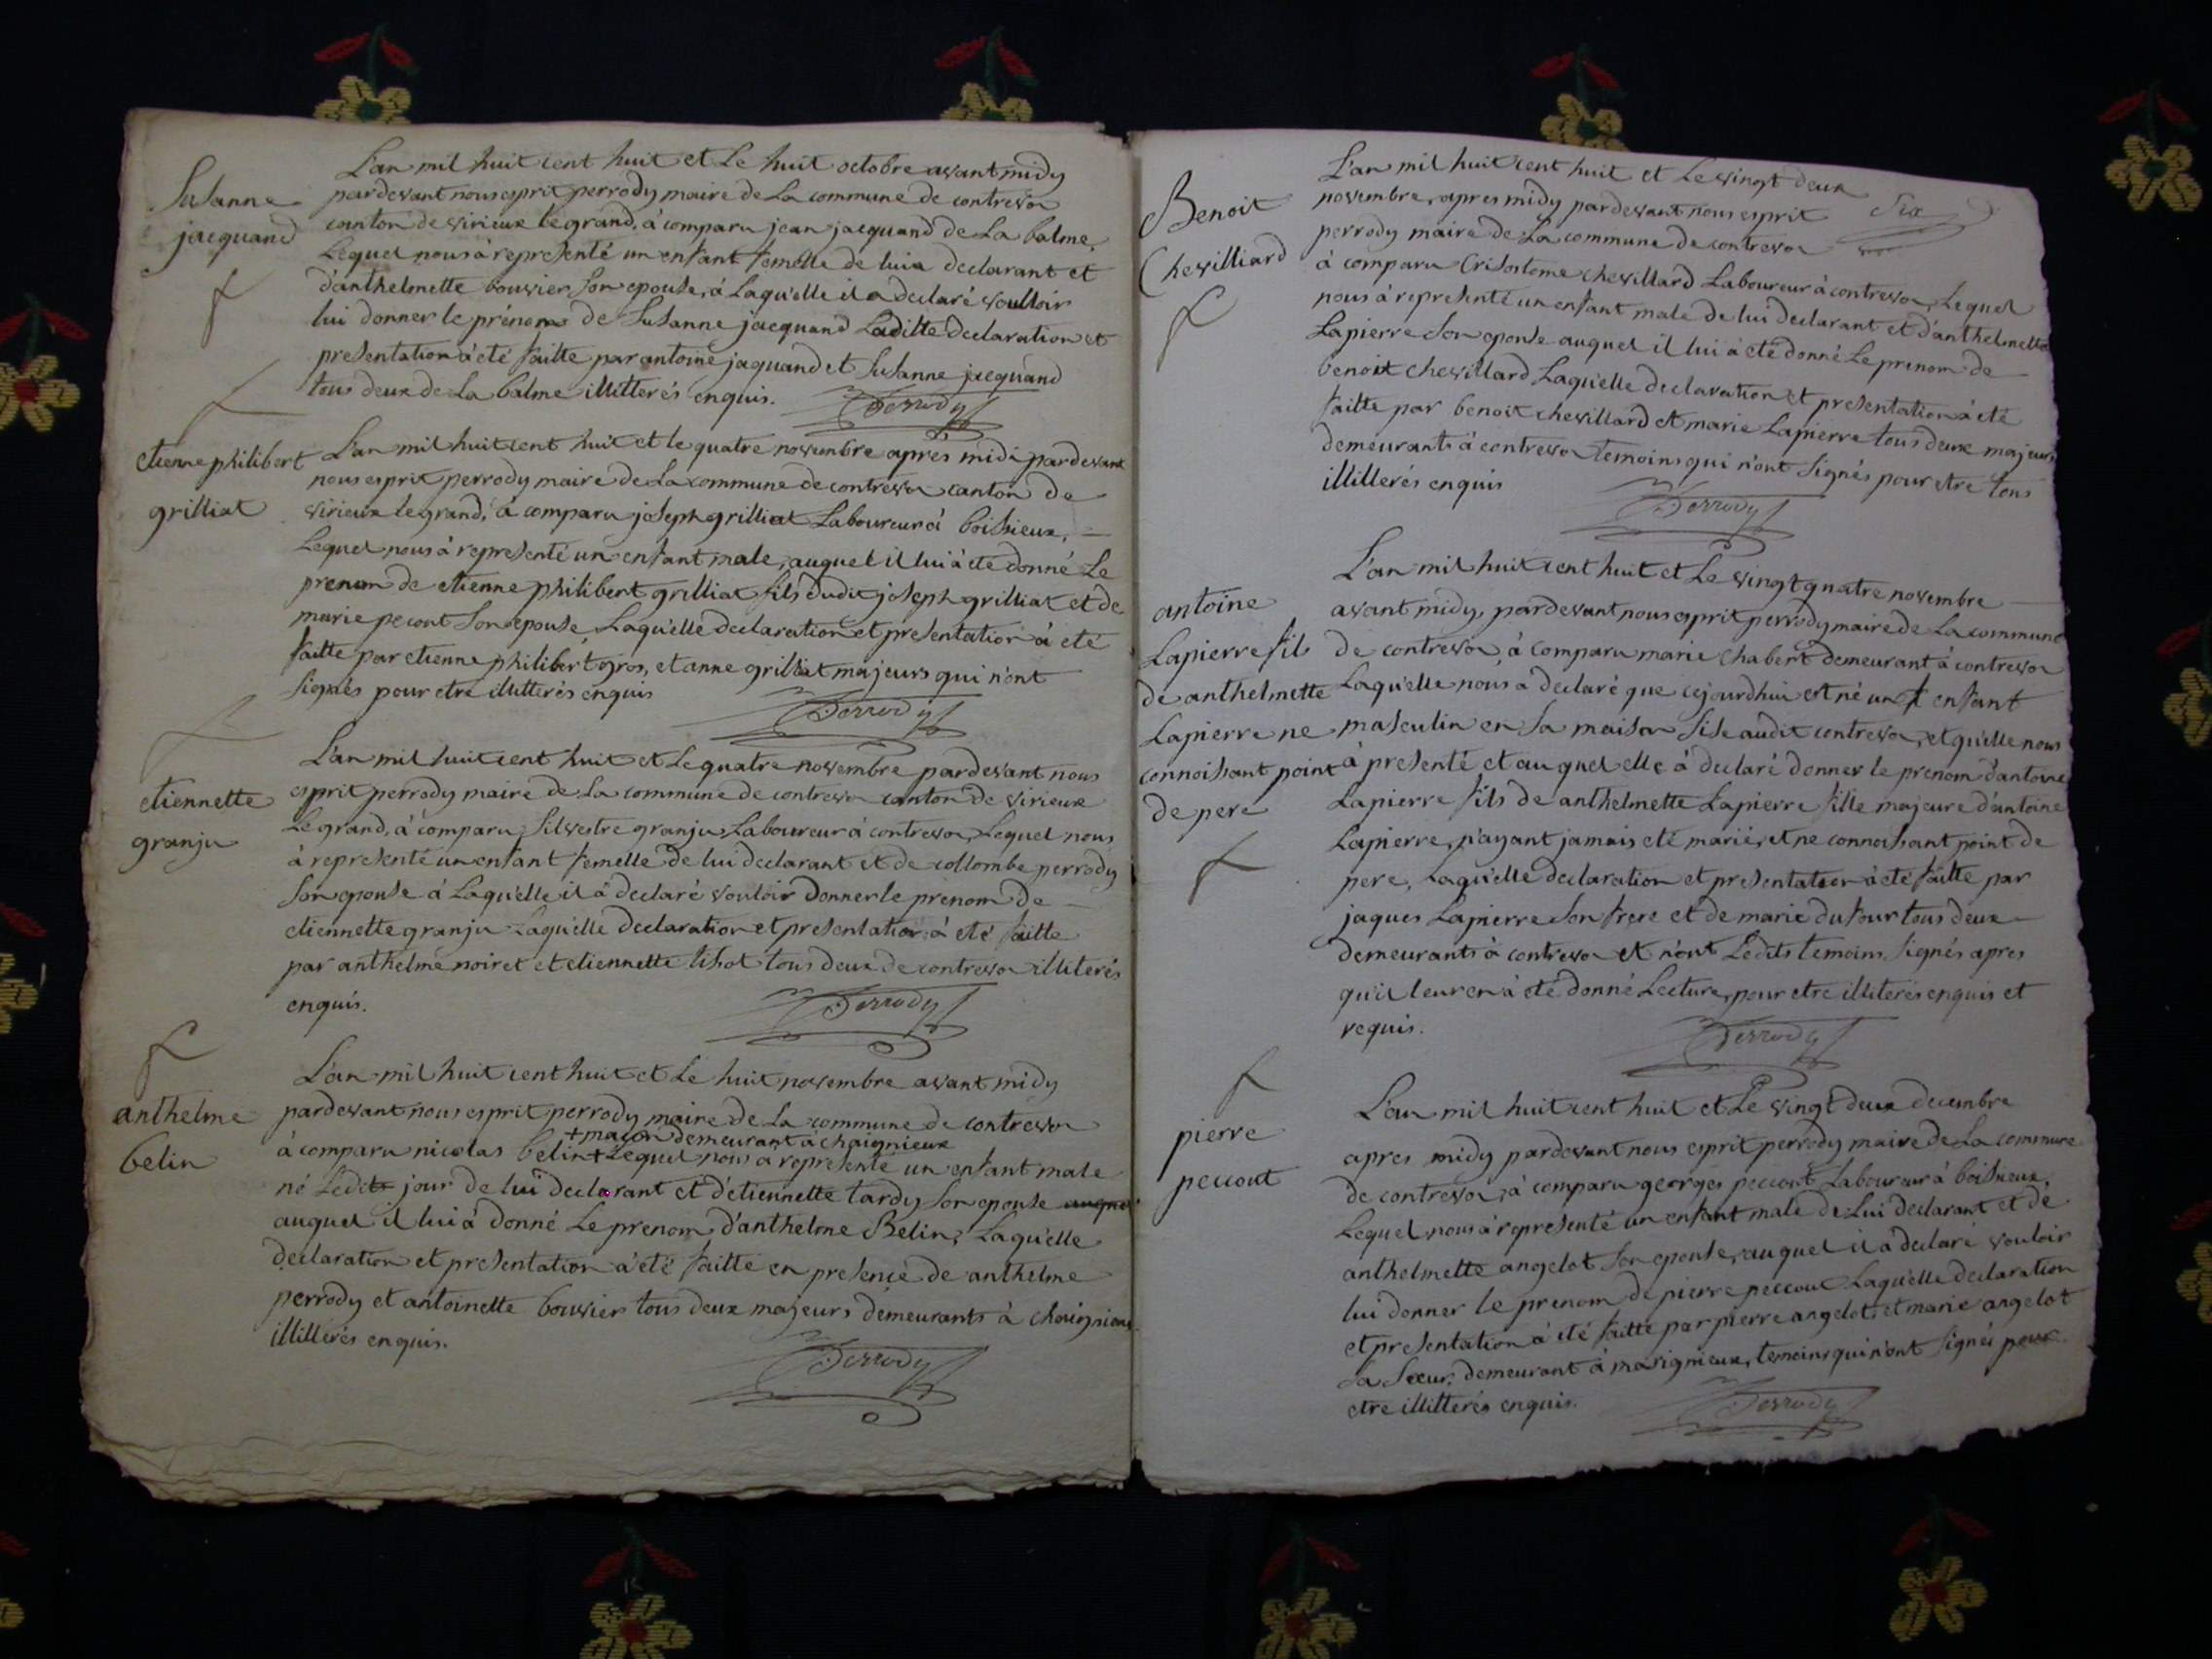 Susanne
jacquand
L'an mil huit cent huit et Le huit octobre avant midy
pardevant nous esprit perrody maire de La commune de contrevoz
canton de virieux le grand, à comparu jean jacquand de La balme,
Lequel nous à representé un enfant femelle de lui declarant et
d'anthelmette bouvier Son epouse, à Laqu'elle il a declaré voulloir
lui donner le prénom de Susanne jacquand Laditte declaration et
presentation à eté faitte par antoine jaquand et Susanne jacquand
tous deux de La balme illitterés enquis.
Perrody
etienne philibert
grilliat
L'an mil huit cent huit et le quatre novembre apres midi pardevant
nous esprit perrody maire de La commune de contrevoz canton de
virieux le grand, à comparu joseph grilliat Laboureur à boissieux,
Lequel nous à representé un enfant male, auquel il lui à eté donné Le
prenom de etienne philibert grilliat fils dudit joseph grilliat et de
marie pecout Son epouse, Laqu'elle declaration et presentation à eté
faitte par etienne philibert gros, et anne grilliat majeurs qui n'ont
signés pour etre illitterés enquis
Perrody
etiennette
granju
L'an mil huit cent huit et Le quatre novembre pardevant nous
esprit perrody maire de La commune de contrevoz canton de virieux
Le grand, à comparu Silvestre granju Laboureur à contrevoz, Lequel nous
à representé un enfant femelle de lui declarant et de collombe perrody
Son epouse à Laqu'elle il à declaré vouloir donner le prenom de
etiennette granju Laqu'elle declaration et presentation à eté faitte
par anthelme noiret et etiennette tisot tous deux de contrevoz illiterés
enquis.
Perrody
anthelme
belin
L'an mil huit cent huit et Le huit novembre avant midy
pardevant nous esprit perrody maire de La commune de contrevoz
+ maçon demeurant à chaignieux
à comparu nicolas belin + Lequel nous à representé un enfant male
né Ledit jour de lui declarant et d'etiennette tardy Son epouse auquel
auquel il lui à donné Le prenom d'anthelme Belin, Laqu'elle
declaration et presentation à eté faitte en presence de anthelme
perrody et antoinette bouvier tous deux majeurs demeurants à chaignieux
illitterés enquis.
Perrody
Six
Benoit
Chevilliard
L'an mil huit cent huit et Le vingt deux
novembre, apres midy pardevant nous esprit
perrody maire de La commune de contrevoz
à comparu Crisostome chevillard Laboureur à contrevoz, Lequel
nous à representé un enfant male de lui declarant et d'anthelmette
Lapierre Son epouse auquel il lui à eté donné Le prenom de
benoit chevillard Laqu'elle declaration et presentation à eté
faitte par benoit chevillard et marie Lapierre tous deux majeurs
demeurants à contrevoz temoins qui n'ont signés pour etre tous
illitterés enquis
Perrody
antoine
Lapierre fils
de anthelmette
Lapierre ne
connoissant point
de pere
L'an mil huit cent huit et Le vingt quatre novembre
avant midy, pardevant nous esprit perrody maire de La commune
de contrevoz, à comparu marie chabert demeurant à contrevoz
Laqu'elle nous a declaré que cejourdhui est né un enfant
masculin en Sa maison Sise audit contrevoz, et qu'elle nous
à presenté et auquel elle à declaré donner le prenom d'antoine
Lapierre fils de anthelmette Lapierre fille majeure d'antoine
Lapierre, n'ayant jamais eté marié, et ne connoissant point de
pere, Laqu'elle declaration et presentation à eté faitte par
jaques Lapierre Son frere et de marie dufour tous deux
demeurants à contrevoz et n'ont Ledits temoins signés apres
qu'il leur en à eté donné Lecture, pour etre illiterés enquis et
requis.
Perrody
pierre
peccout
L'an mil huit cent huit et Le vingt deux decembre
apres midy pardevant nous esprit perrody maire de La commune
de contrevoz, à comparu georges peccout Laboureur à boissieux,
Lequel nous à representé un enfant male de Lui declarant et de
anthelmette angelot Son epouse, auquel il a declaré vouloir
lui donner le prenom de pierre peccout Laqu'elle declaration
et presentation à eté faitte par pierre angelot, et marie angelot
Sa Sœur, demeurant à marignieux, temoins qui n'ont signés pour
etre illitterés enquis.
Perrody